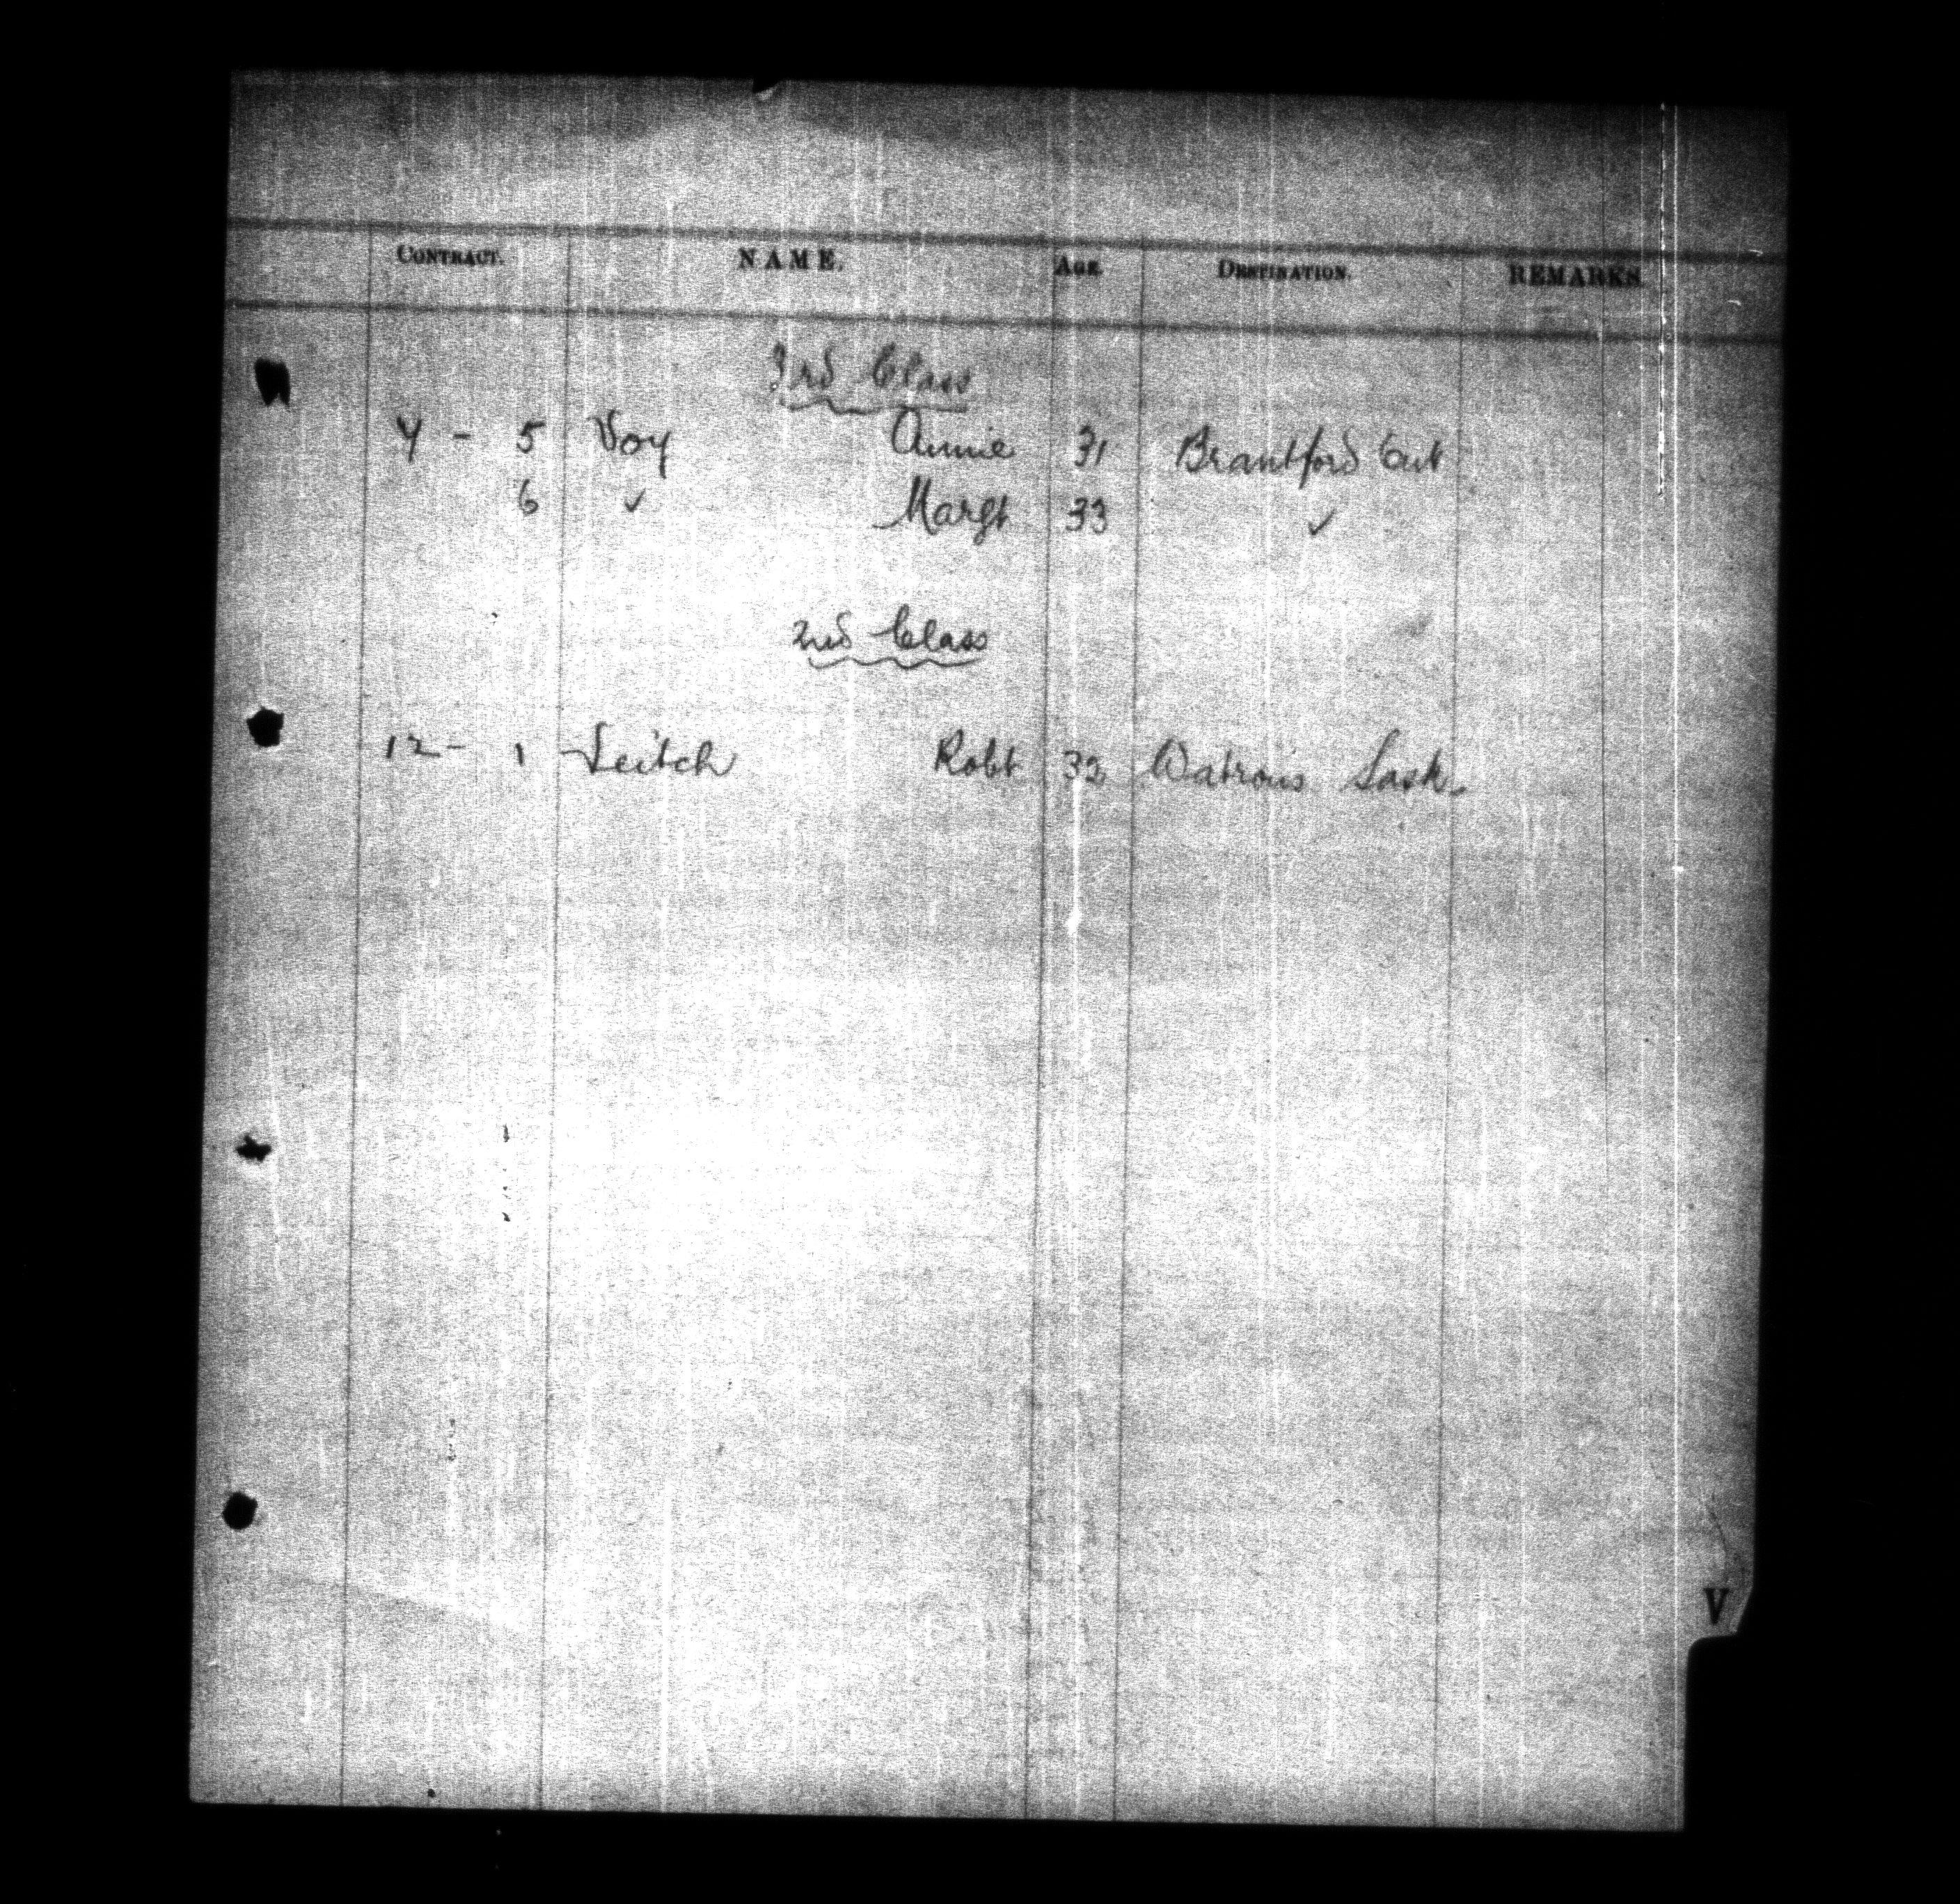 CONTRACT. NAME. AGE. DESTINATION. REMARKS.
3rd Class
4 - 5 Voy Annie 31 Brantford Ont
6 ✓ Margt 33 ✓
2nd Class
12 - 1 Leitch Robt 32 Watrous Sask.
V